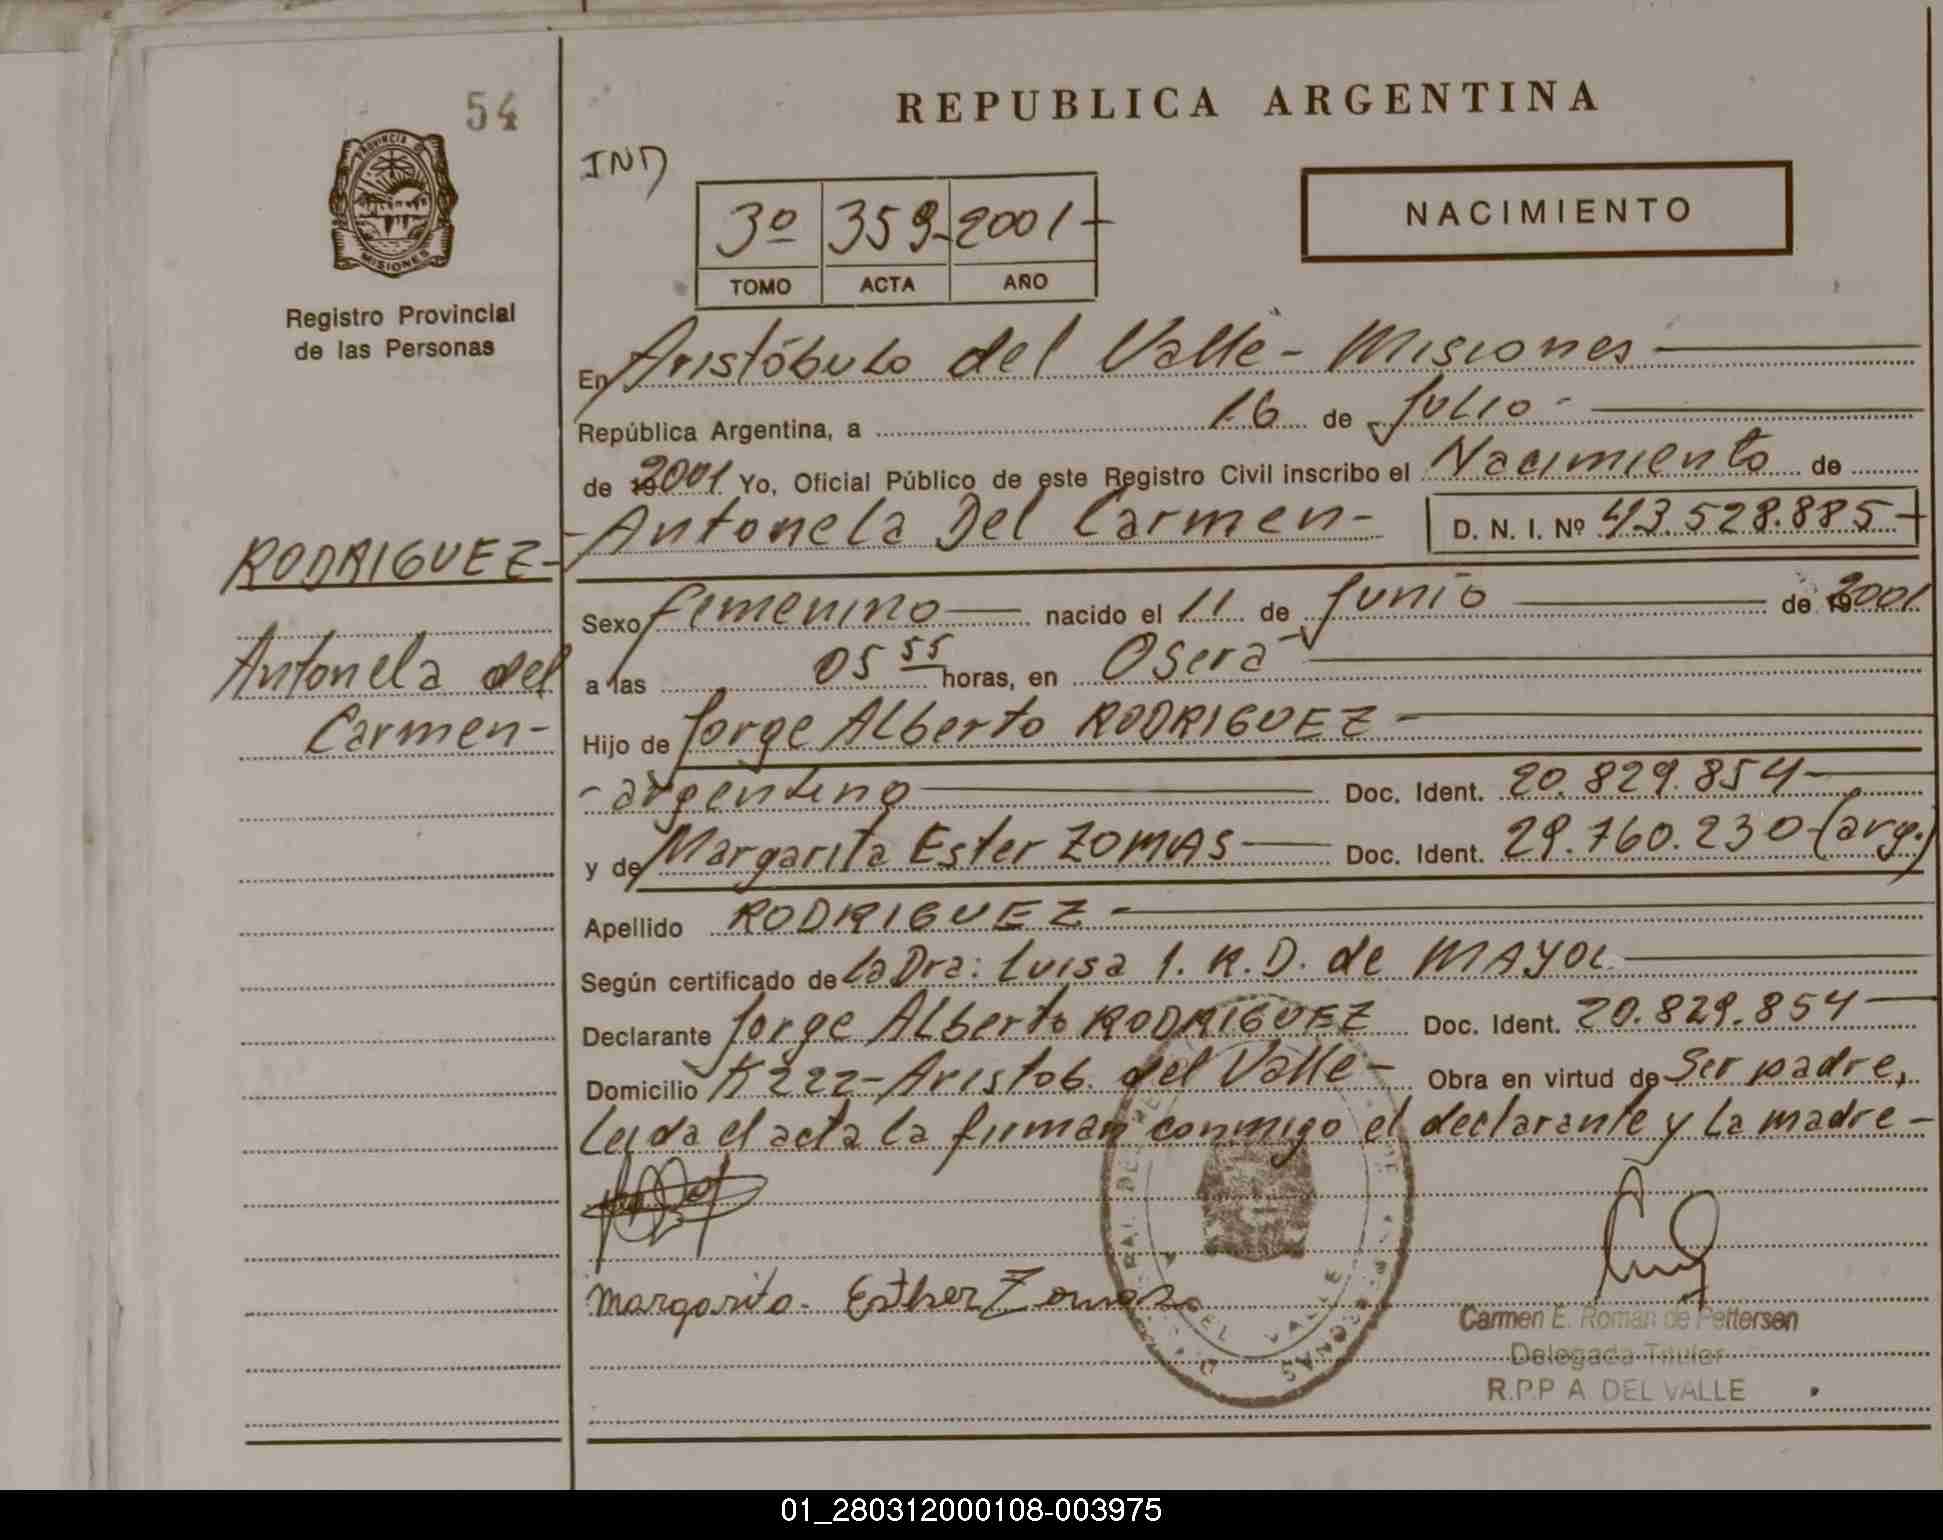 54
REPUBLICA ARGENTINA
IND
PROVINCIA DE
MISIONES
Registro Provincial
de las Personas
3º 359- 2001-
TOMO ACTA AÑO
NACIMIENTO
En Aristóbulo del Valle - Misiones
República Argentina, a 16 de Julio -
de 2001 Yo, Oficial Público de este Registro Civil inscribo el Nacimiento de
- Antonela Del Carmen - D. N. I. Nº 43.528.885-
RODRIGUEZ-
Antonela del
Carmen-
Sexo femenino nacido el 11 de Junio de 2001
a las 05 55 horas, en Oberá -
Hijo de Jorge Alberto RODRIGUEZ -
- argentino Doc. Ident. 20.829.854-
y de Margarita Ester ZOMAS Doc. Ident. 29.760.230-(arg.)
Apellido RODRIGUEZ -
Según certificado de la Dra: Luisa I. K. D. de MAYOL
Declarante Jorge Alberto RODRIGUEZ Doc. Ident. 20.829.854-
Domicilio K 222- Aristob. del Valle - Obra en virtud de Ser padre,
Leida el acta la firman conmigo el declarante y la madre -
Margarita Esther Zomas
Carmen E. Roman de Pettersen
Delegada Titular
R.P.P A. DEL VALLE
01_280312000108-003975